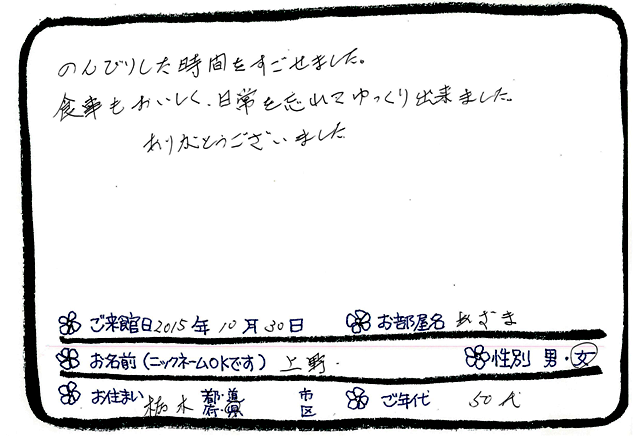 のんびりした時間をすごせました。
食事もおいしく、日常を忘れてゆっくり出来ました。
ありがとうございました
ご来館日2015年10月30日 お部屋名 あさま
お名前(ニックネームOKです) 上野. 性別 男・女
お住まい 栃木 都・道 府・県 市 区 ご年代 50代